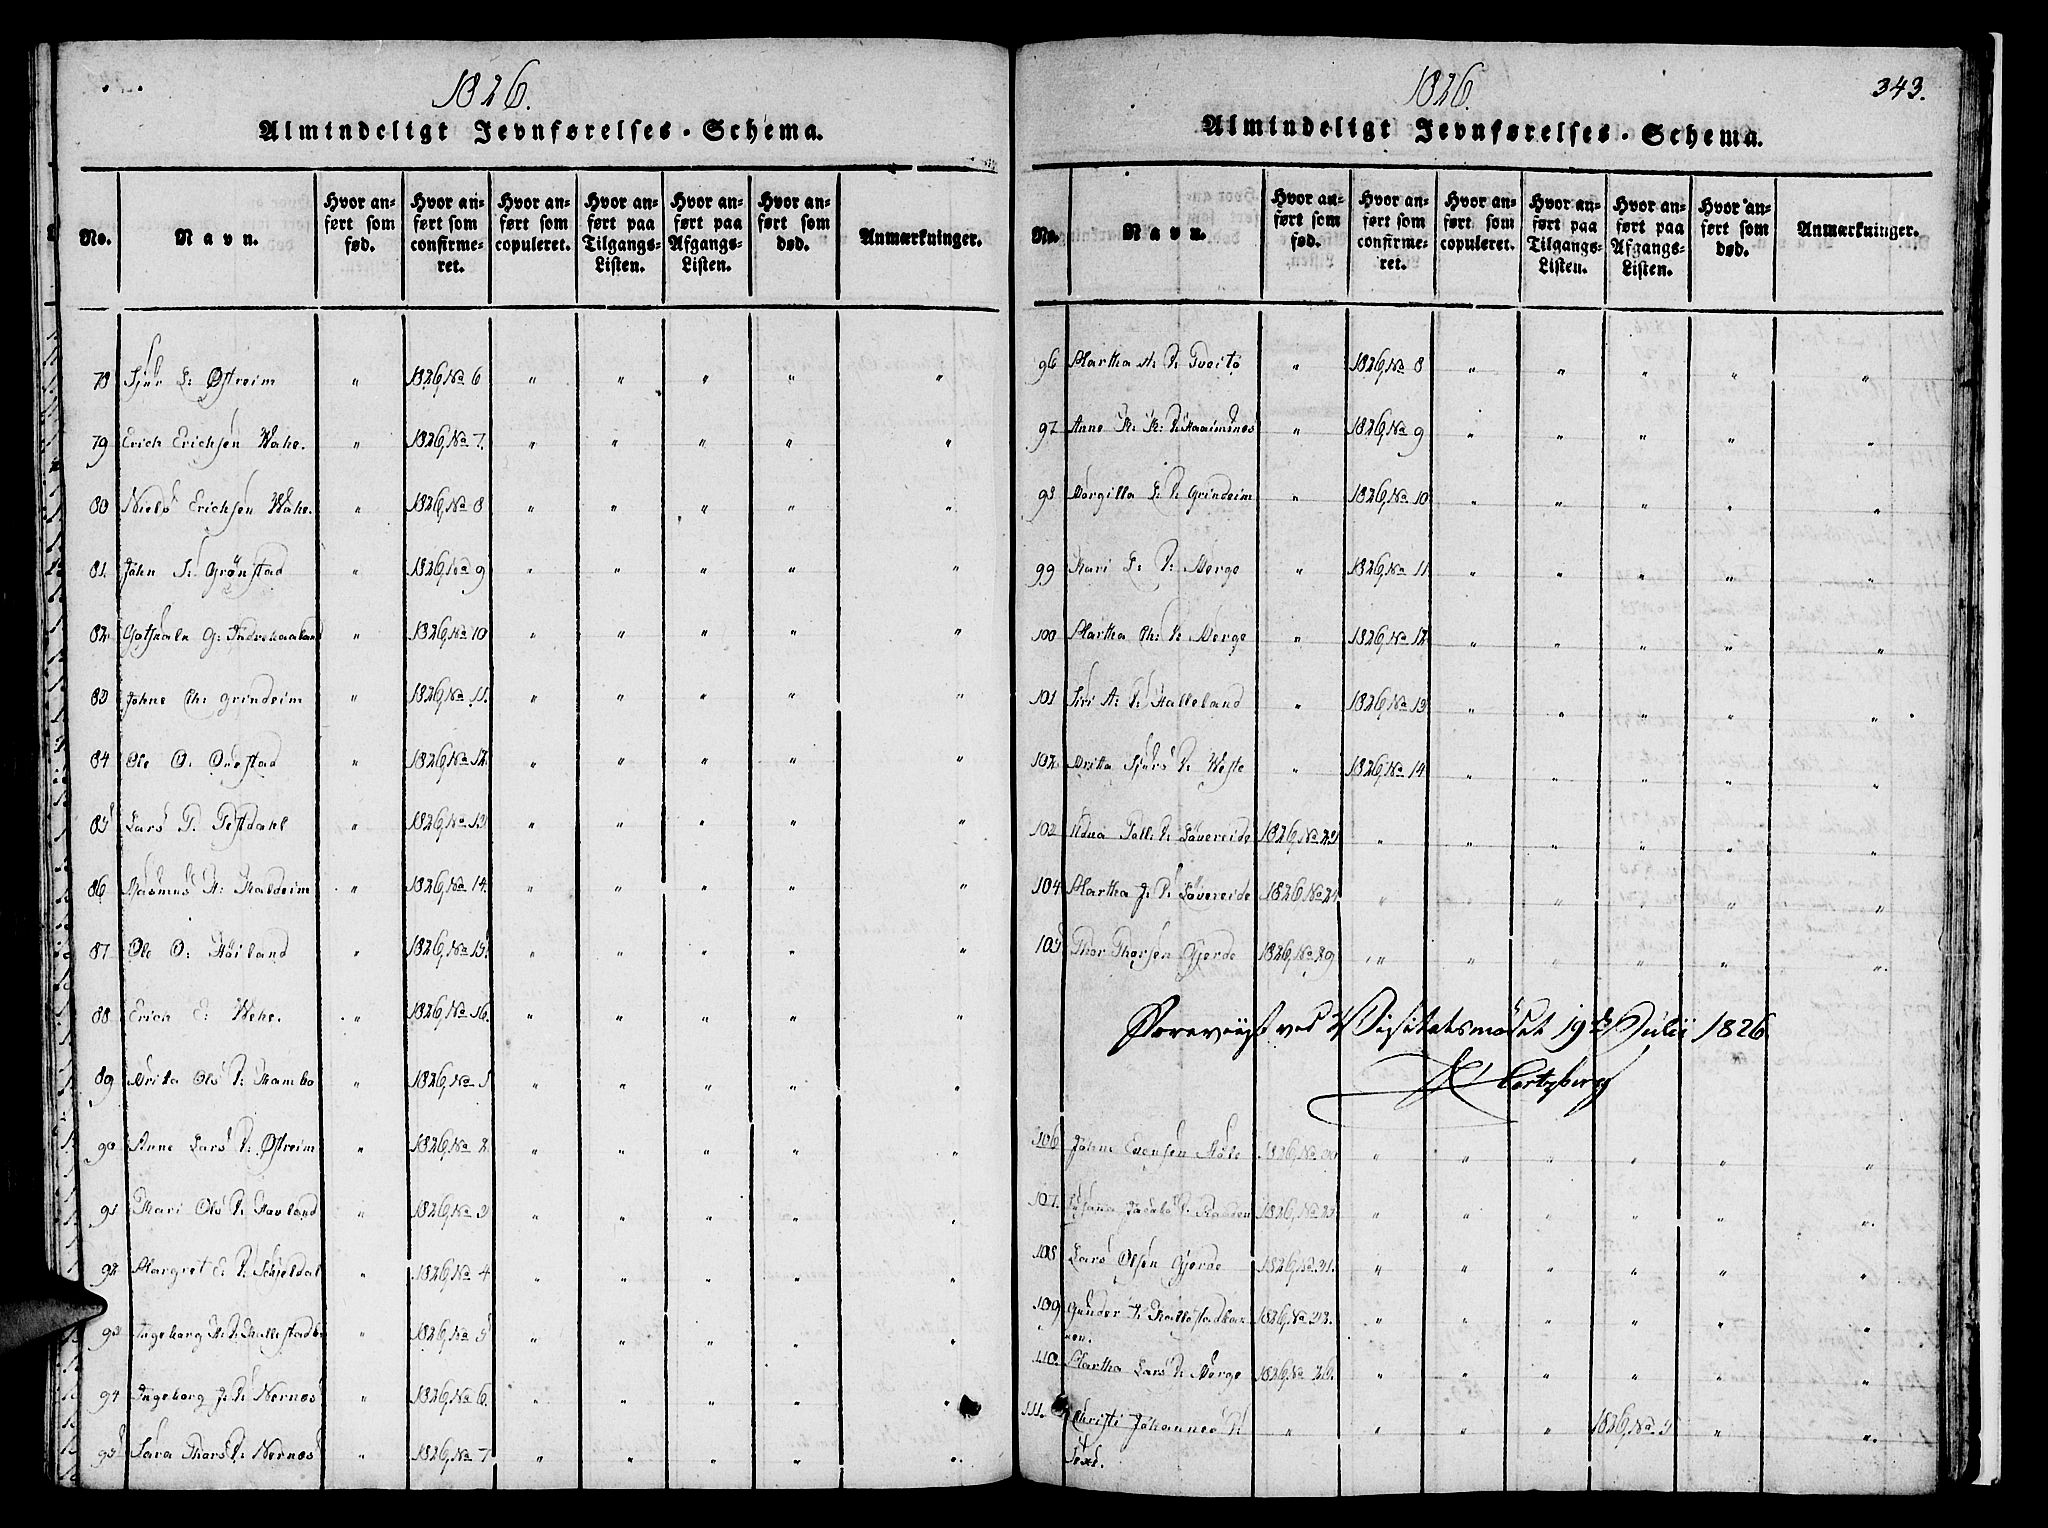 1826.
Almindeligt Jevnførelses-Schema.
No. Navn. Hvor anført som fød. Hvor anført som confirmeret. Hvor anført som copuleret. Hvor anført paa Tilgangs-Listen. Hvor anført paa Afgangs-Listen. Hvor anført som død. Anmærkninger.
78 Sjur L: Østreim " 1826, No 6 " " " " "
79 Erich Erichsen Wahe. " 1826, No 7. " " " " "
80 Niels Erichsen Wahe. " 1826, No 8 " " " " "
81. John S. Grønstad " 1826, No 9 " " " " "
82. G: Indrehaaland " 1826, No 10 " " " " "
83 Johne Ch: Grindeim " 1826, No 11. " " " " "
84 Ole O. " 1826, No 12. " " " " "
85 Lars T. Testdahl " 1826, No 13 " " " " "
86 Rasmus H: Haldeim " 1826, No 14. " " " " "
87 Ole O: Høiland " 1826, No 15. " " " " "
88 Erich E: Wehe. " 1826, No 16. " " " " "
89 Brita Ols D: Hambo " 1826, No 1 " " " " "
90 Anne Lars D: Østreim " 1826, No 2. " " " " "
91 Kari Ols D: Hovland " 1826, No 3 " " " " "
92 Margret E: D: Schjeldal " 1826, No 4 " " " " "
93 Ingeborg H: D: " 1826, No 5 " " " " "
94 Ingeborg J: D: Nernes " 1826, No 6. " " " " "
95 Sara Thors D: Nernes " 1826, No 7 " " " " "
1826.
343.
Almindeligt Jevnførelses-Schema.
No. Navn. Hvor anført som fød. Hvor anført som confirmeret. Hvor anført som copuleret. Hvor anført paa Tilgangs-Listen. Hvor anført paa Afgangs-Listen. Hvor anført som død. Anmærkninger.
96 Martha A: D: Tveito " 1826, No 8 " " " " "
97 Anne K: K: D: " 1826, No 9 " " " " "
98 Borgilla L: D: Grindeim " 1826, No 10 " " " " "
99 Kari L: D: Berge " 1826, No 11 " " " " "
100 Martha Ch: D: Berge " 1826, No 12 " " " " "
101 Siri A: D: Halleland " 1826, No 13 " " " " "
102. Brita Sjurs D: " 1826, No 14 " " " " "
103 Udna Poll: D: Løvereide 1826, No 23 " " " " " "
104 Martha J: D: Løvereide 1826 No 24. " " " " " "
105 Thor Thorsen Gjerde 1826, No 29 " " " " " "
Foreviist ved Visitatsmødet 19de Julii 1826
Hertzberg
106 Johne Evensen 1826, No 30 " " " " " "
107. Susana Jacobs D: 1826, No 25 " " " " " "
108 Lars Olsen Gjerde 1826, No 31. " " " " " "
109 Gunder 1826, No
nen.
110. Martha Lars D: Berge 1826 No 26. " " " " " "
111. Christi Johannes D: " " " " 1826, No 3 " "